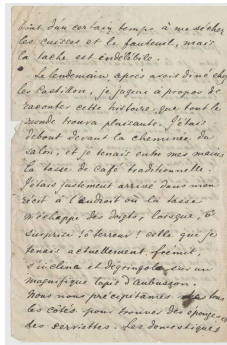 bout d'un certain temps à me sécher
les cuisses et le fauteuil, mais
la tache est indélébile.
Le lendemain après avoir diné chez
les Castillon, je jugeai à propos de
raconter cette histoire, que tout le
monde trouva plaisante. J'étais
debout devant la cheminée du
salon, et je tenais entre mes mains
la tasse de café traditionnelle.
J'étais justement arrivé dans mon
récit à l'endroit où la tasse
m'échappe des doigts, lorsque, ô
surprise ! ô terreur ! celle que je
tenais actuellement frémit,
s'incline et dégringole sur un
magnifique tapis d'Aubusson.
Nous nous précipitâmes de tous
les côtés pour trouver des éponges et
des serviettes. Les domestiques